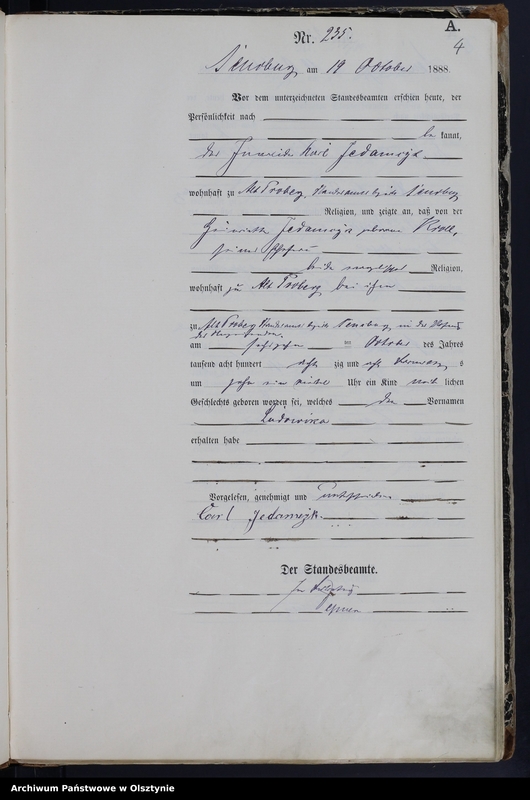 A.
4
Nr. 235.
am 19 October 1888.
Vor dem unterzeichneten Standesbeamten erschien heute, der
Persönlichkeit nach
be kannt,
der Karl Jedamzik
wohnhaft zu Alt Proberg, Standesamtsbezirk Sensburg
Religion, und zeigte an, daß von der
Jedamzik geborene Kroll,
seiner Ehefrau
beide evangelischer Religion,
wohnhaft zu Alt Proberg bei ihm
zu Alt Proberg Standesamtsbezirk Sensburg in der Wohnung
am October des Jahres
tausend acht hundert acht zig und acht Vormittags
um zehn ein viertel Uhr ein Kind weib lichen
Geschlechts geboren worden sei, welches den Vornamen
Ludowika
erhalten habe
Vorgelesen, genehmigt und unterschrieben
Carl Jedamzik.
Der Standesbeamte.
In Vertretung
Archiwum Państwowe w Olsztynie